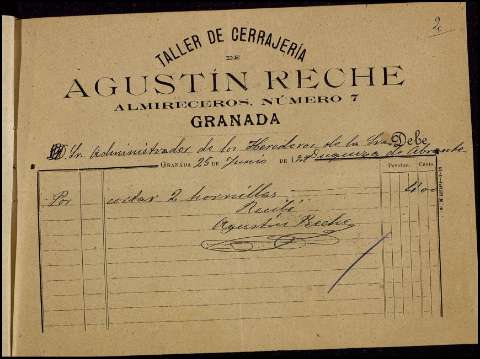 2
TALLER DE CERRAJERÍA
DE
AGUSTÍN RECHE
ALMIRECEROS, NÚMERO 7
GRANADA
Sr. Administrador de los Herederos de la Sra. Debe
Duquesa de Abrantes
GRANADA 25 DE Junio DE
Pesetas. Cents.
Por 2 hornillas 4 00
Recibí
Agustín Reche